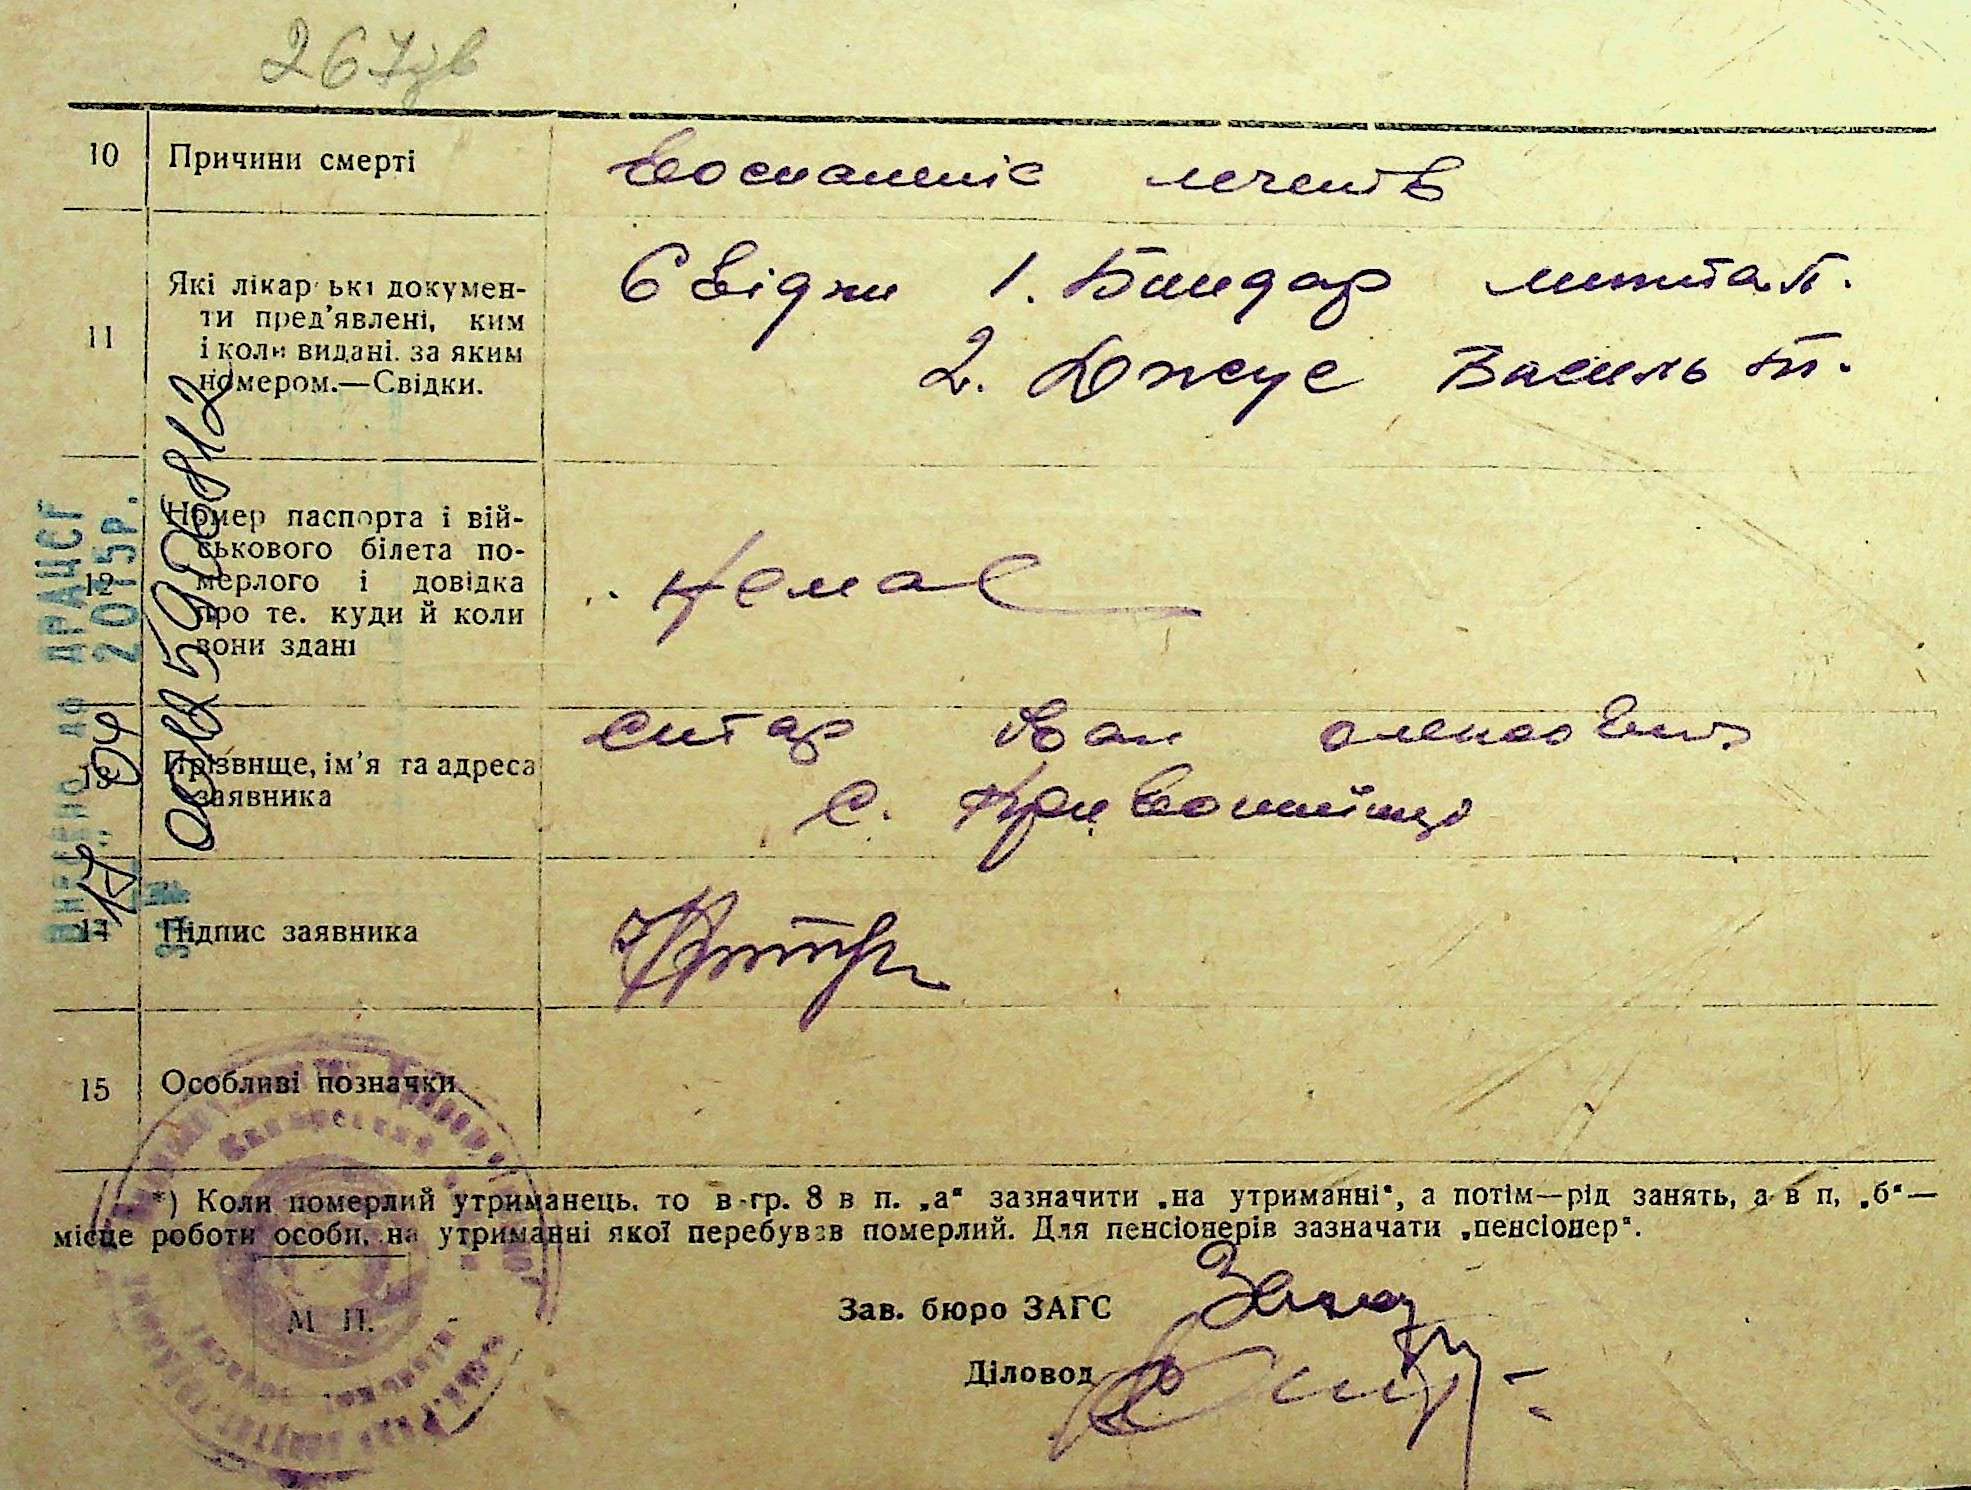 267зв
10 Причини смерті
Воспаленіє легенів
11 Які лікарські докумен-
ти пред'явлені, ким
і коли видані. за яким
номером.—Свідки.
Свідки 1. Бондар
2. Джус Василь
12 Номер паспорта і вій-
ськового білета по-
мерлого і довідка
про те. куди й коли
вони здані
Немає
13 Прізвище, ім'я та адреса
заявника
Ситар Іван
с.
14 Підпис заявника
15 Особливі позначки
*) Коли померлий утриманець. то в гр. 8 в п. „а“ зазначити „на утриманні“, а потім—рід занять, а в п, „б“—
місце роботи особи, на утриманні якої перебував померлий. Для пенсіонерів зазначати „пенсіонер“.
М П.
Зав. бюро ЗАГС
Діловод
Внесено до ДРАЦСГ
17 04 2015р.
за №